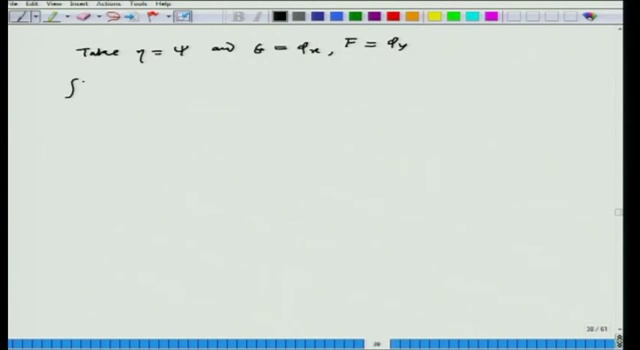 File Edit View Insert Actions Tools Help
Take η = ψ and G = φx, F = φy
∫
38 / 61
38